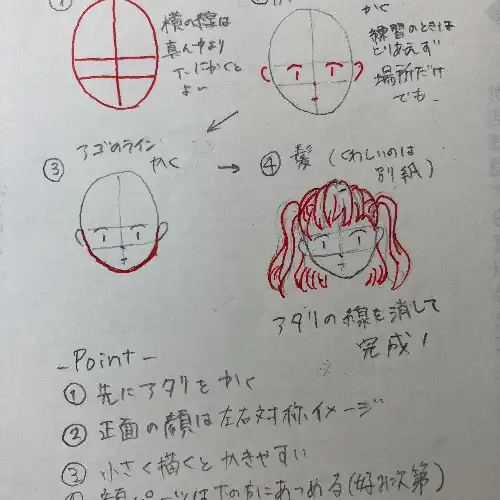 ①
横の線は
真ん中より
下にかくと
よい
かく
練習のときは
とりあえず
場所だけ
でも
③ アゴのライン
かく
→ ④ 髪 (くわしいのは
別紙)
アタリの線を消して
完成!
-Point-
① 先にアタリをかく
② 正面の顔は左右対称イメージ
③ 小さく描くとかきやすい
顔パーツは下の方にあつめる(好み次第)